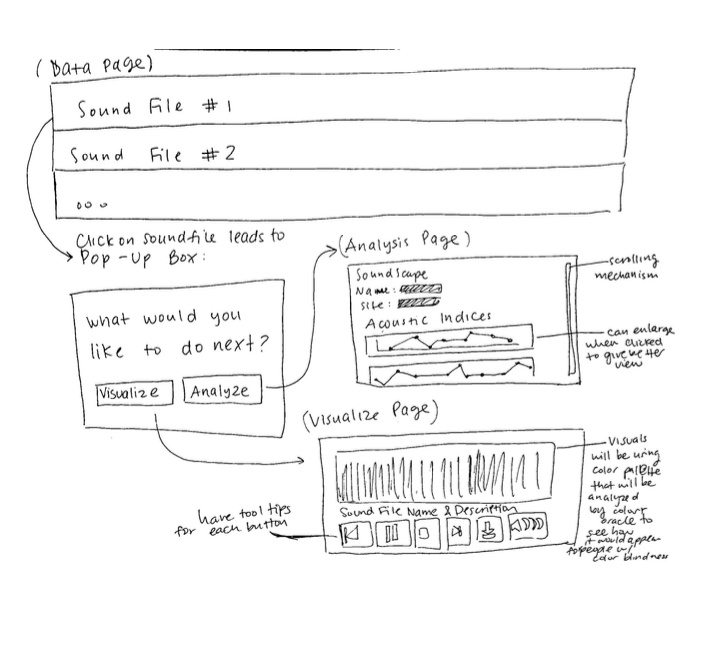 (Data Page)
Sound File #1
Sound File #2
...
Click on soundfile leads to
Pop-Up Box:
What would you
like to do next?
Visualize
Analyze
(Analysis Page)
Soundscape
Name:
Site:
Acoustic Indices
scrolling
mechanism
can enlarge
when clicked
to give better
view
(Visualize Page)
Sound File Name & Description
have tool tips
for each button
Visuals
will be using
color palette
that will be
analyzed
by color
oracle to
see how
it would appear
to people w/
color blindness